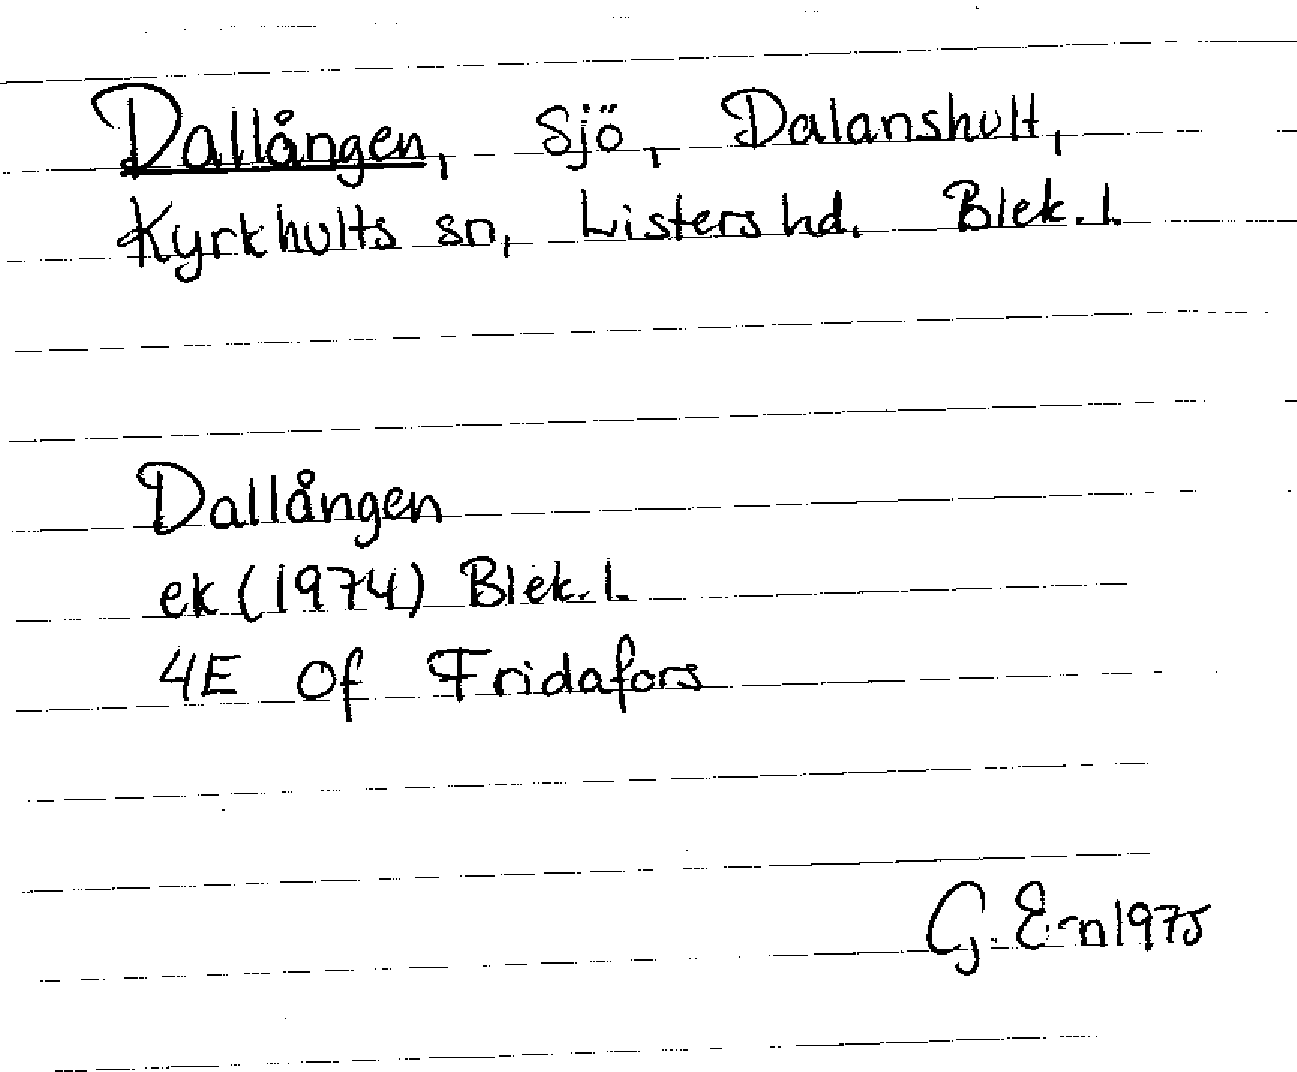 Dallången, Sjö, Dalanshult,
Kyrkhults sn, Listers hd. Blek. l.
Dallången
ek (1974) Blek. l.
4E Of Fridafors
G. E-n 1975